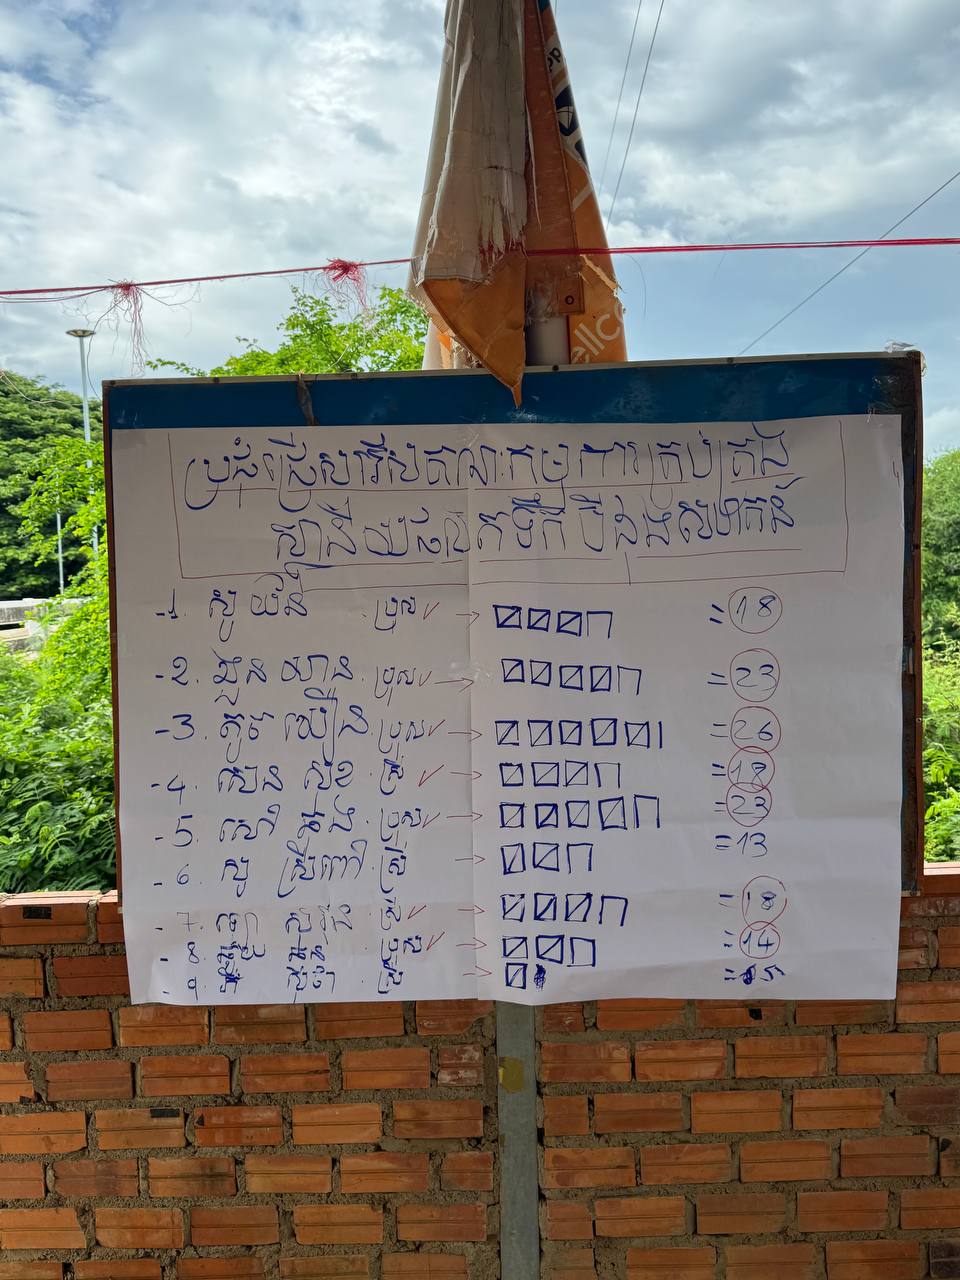 ប្រជុំជ្រើសរើសគណៈកម្មការគ្រប់គ្រង
ស្ថានីយផលិតទឹក បឹងងសហគន៍
-1. សូ យ៉ន ប្រុស ✓ → = 18
-2. ដួន ឃាន ប្រុស ✓ → = 23
-3. ភួង ឃឿន ប្រុស ✓ → = 26
-4. សេន សុខ ស្រី ✓ → = 18
-5. សៅ ឆាង ប្រុស ✓ → = 23
-6. សូ ស្រីពៅ ស្រី → = 13
-7. ស្រី ✓ → = 18
-8. ប្រុស ✓ → = 14
-9. ស្រី → = 5
ellc